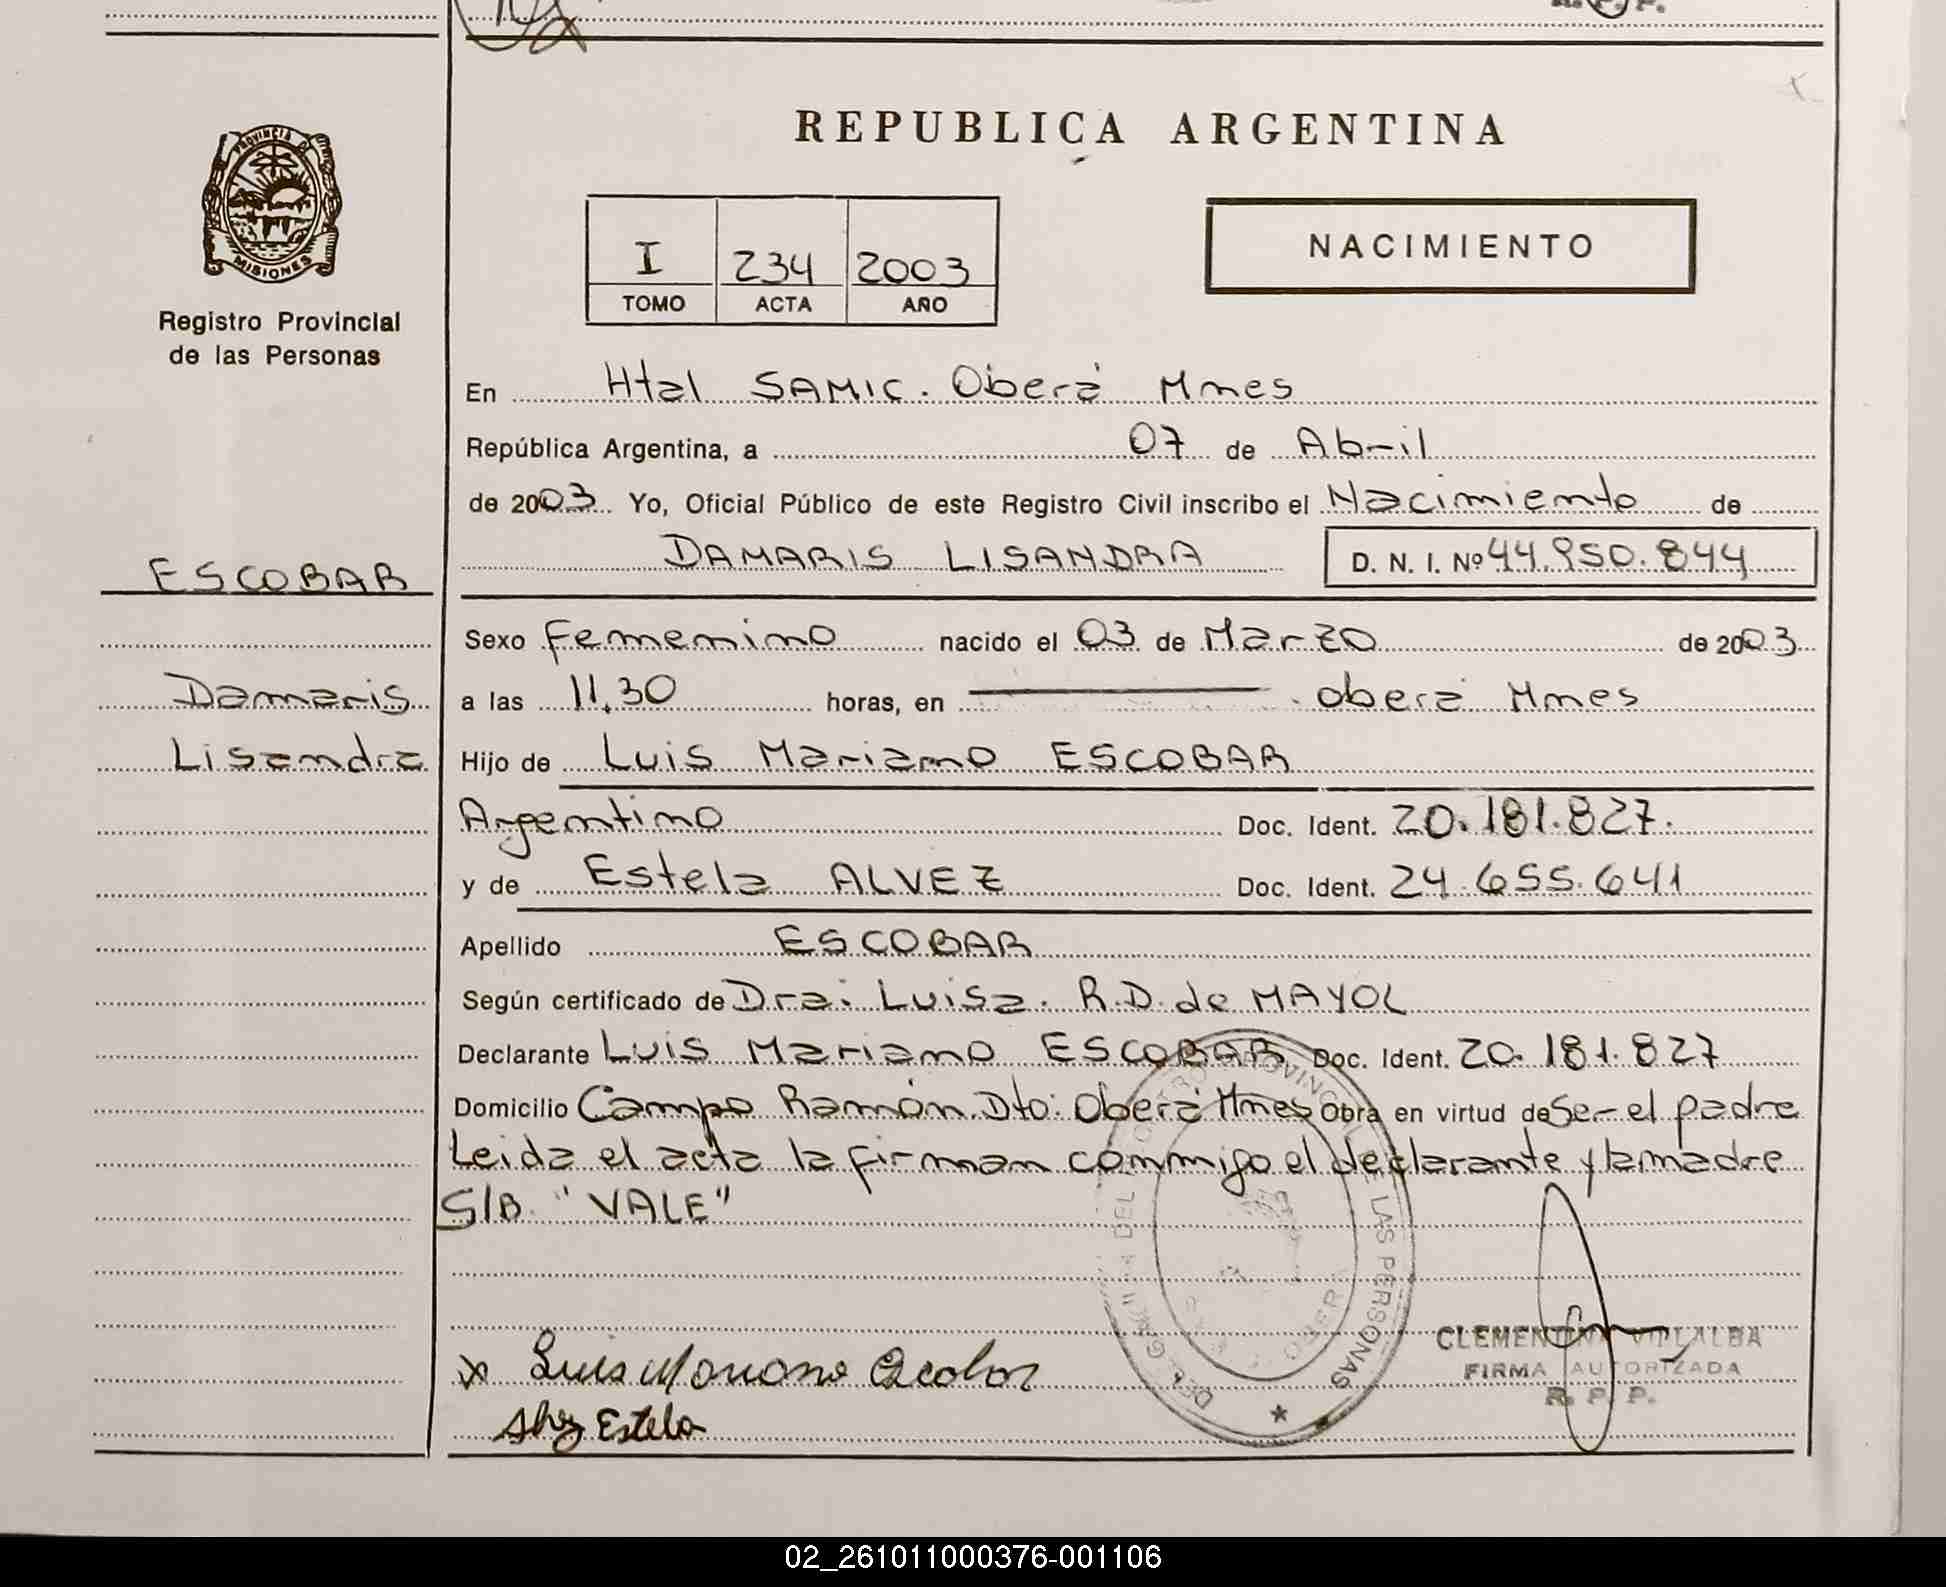 R. P. P.
REPUBLICA ARGENTINA
PROVINCIA D
MISIONES
Registro Provincial
de las Personas
I 234 2003
TOMO ACTA AÑO
NACIMIENTO
En Htal SAMIC. Oberá Mnes
República Argentina, a 07 de Abril
de 2003 Yo, Oficial Público de este Registro Civil inscribo el Nacimiento de
ESCOBAR
DAMARIS LISANDRA D. N. I. Nº 44.950.844
Sexo Femenino nacido el 03 de Marzo de 2003
Damaris
a las 11,30 horas, en Oberá Mnes
Lisandra
Hijo de Luis Mariano ESCOBAR
Argentino Doc. Ident. 20.181.827.
y de Estela ALVEZ Doc. Ident. 24.655.641
Apellido ESCOBAR
Según certificado de Dra: Luisa. R.D. de MAYOL
Declarante Luis Mariano ESCOBAR Doc. Ident. 20.181.827
Domicilio Campo Ramón. Dto: Oberá Mnes Obra en virtud de Ser el padre
Leida el acta la firman conmigo el declarante y la madre
S/B. "VALE"
PROVINCIAL DE LAS PERSONAS
CLEMENTINA VILLALBA
FIRMA AUTORIZADA
R. P. P.
x Luis Mariano Escobar
Alvez Estela
02_261011000376-001106